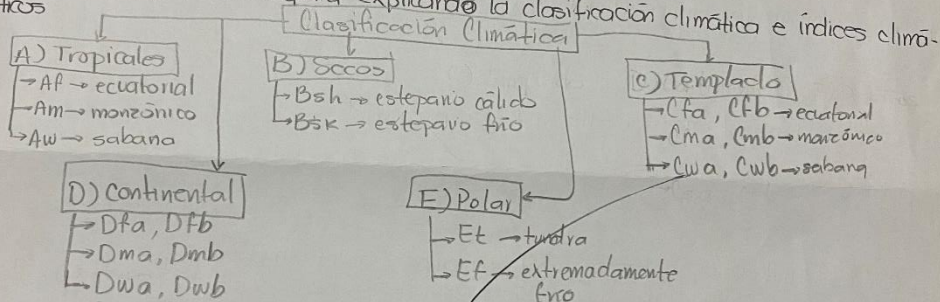 explicando la clasificación climática e índices climá-
ticos
Clasificación Climática
A) Tropicales
Af → ecuatorial
Am → monzónico
Aw → sabana
B) Secos
Bsh → estepario cálido
Bsk → estepavo frío
C) Templado
Cfa, Cfb → ecuatorial
Cma, Cmb → monzónico
Cwa, Cwb → sabana
D) Continental
Dfa, Dfb
Dma, Dmb
Dwa, Dwb
E) Polar
Et → tundra
Ef → extremadamente
frío